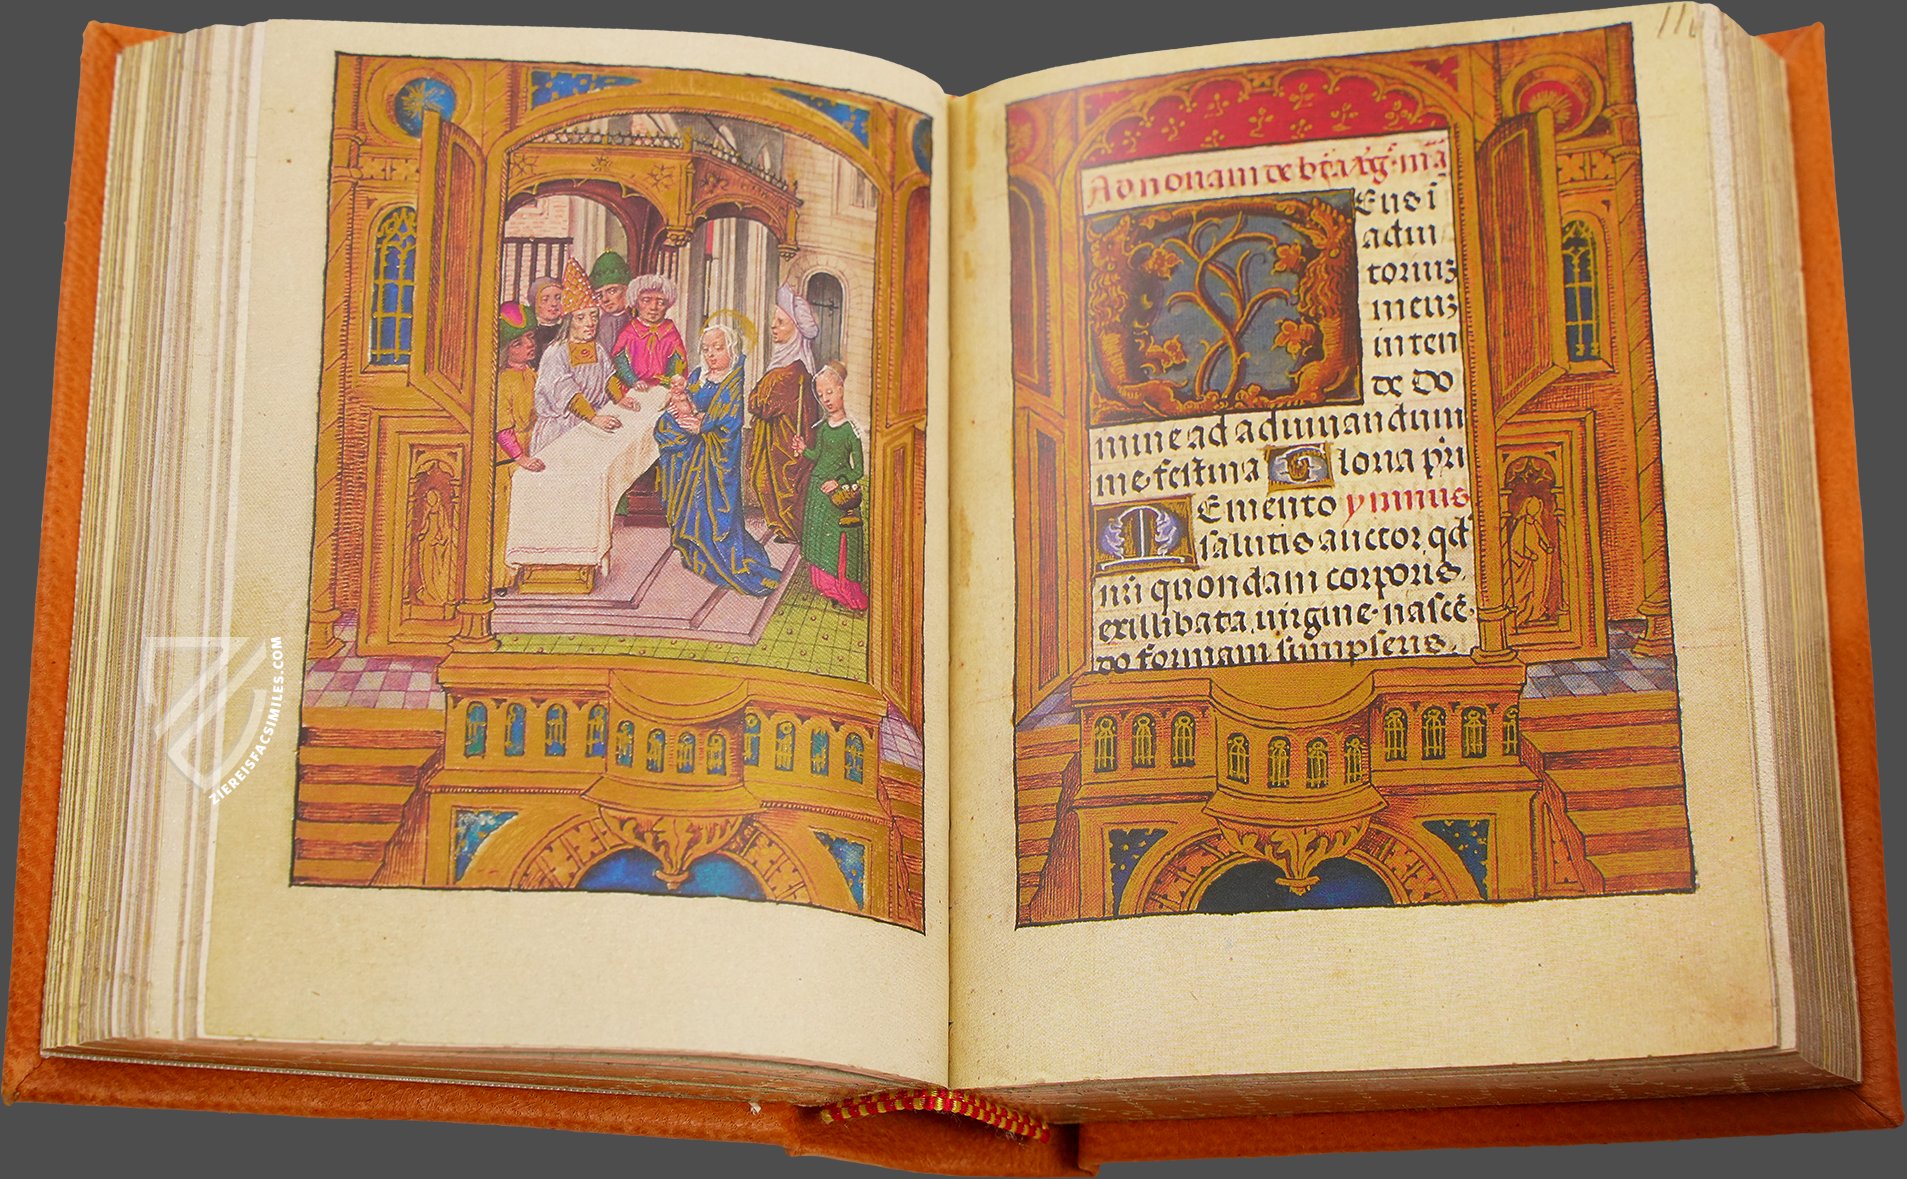 ZIEREISFACSIMILES.COM
Ad nonam de bt̄a v̄g. mā
Eus ī
adiu
toriuʒ
meuʒ
inten
de Do
mine ad adiuuandum
me festina Gloria p̄ri
Memento ymnus
salutis auctor qd̄
nr̄i quondam corporis.
ex illibata uirgine nascē
do formam sumpseris.